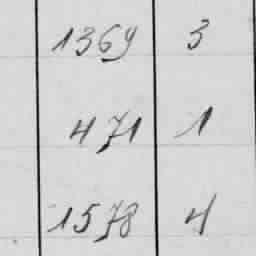 1369 3
471 1
1578 4